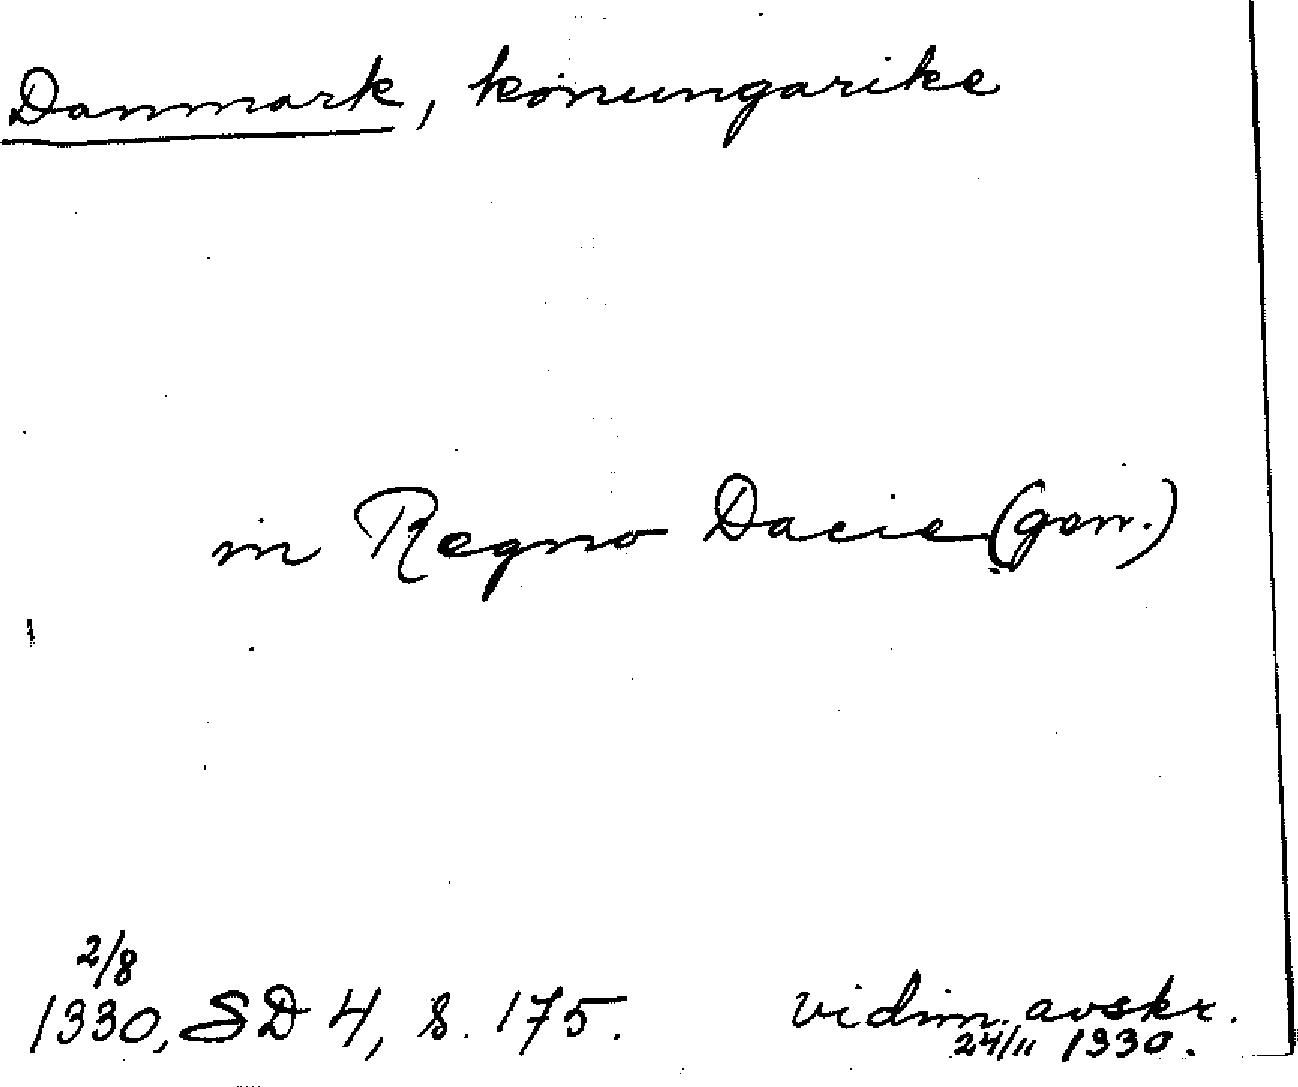 Danmark, konungarike
in Regno Dacie (gen.)
2/8
1330, SD 4, s. 175.
vidim. avskr.
24/11 1330.